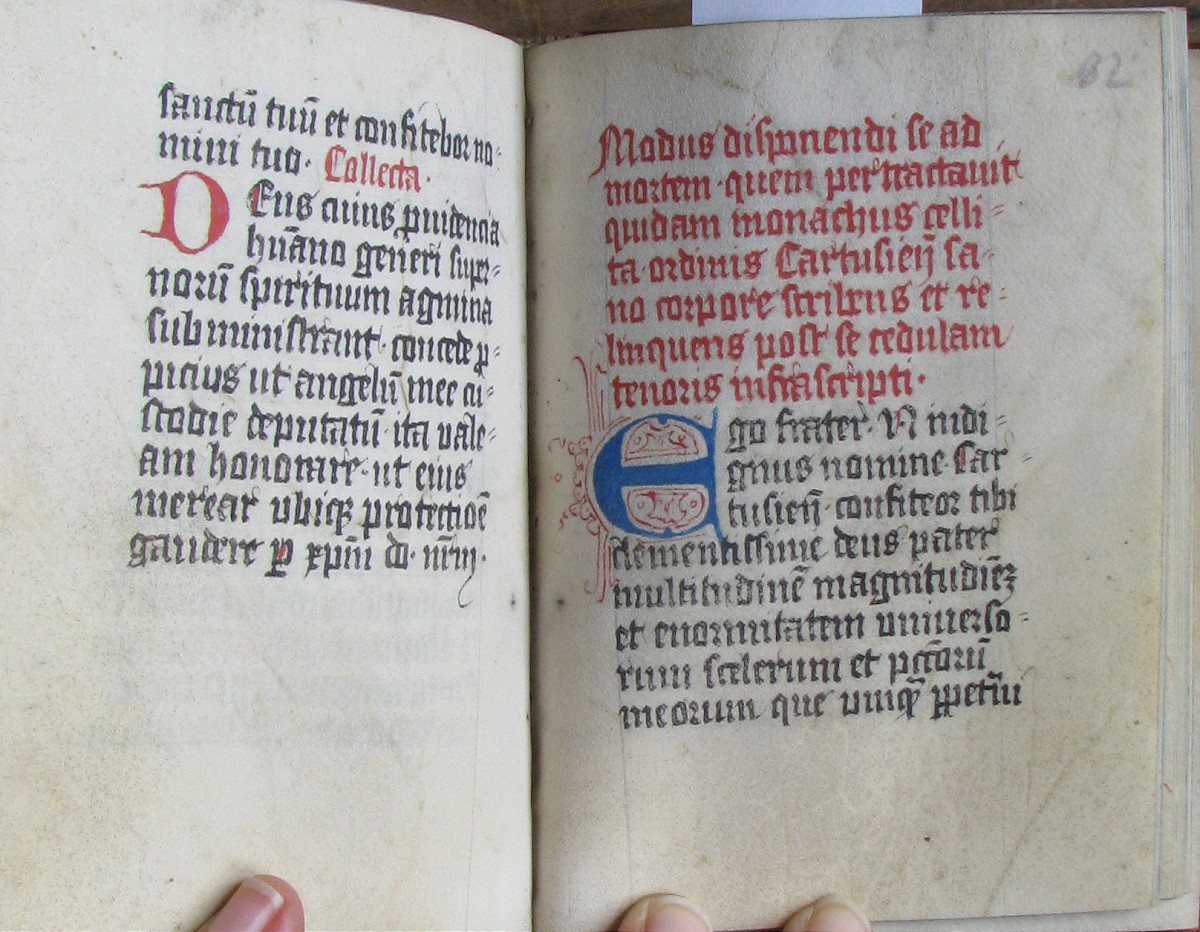 sanctū tuū et confitebor no-
mini tuo. Collecta.
DEus cuius ꝓuidencia
hūano generi super-
norū spirituum agmina
subministrant. concede ꝓ-
picius ut angelū mee cu-
stodie deputatū. ita vale-
am honorare. ut eius
merear ubiqꝫ protectioē
gaudere ꝑ xp̄m dō. nr̄m.
62
Modus disponendi se ad
mortem. quem pertractauit
quidam monachus celli-
ta. ordinis Cartusieñ sa-
no corpore scribens et re-
linquens post se cedulam
tenoris infrascripti.
Ego frater. N indi-
gnus nomine. Car-
tusieñ. confiteor tibi
clementissime deus pater
multitudinē magnitudiēꝫ
et enormitatem vniuerso-
rum scelerum et pcc̄torū
meorum que vnqꝫ ꝑpetūi